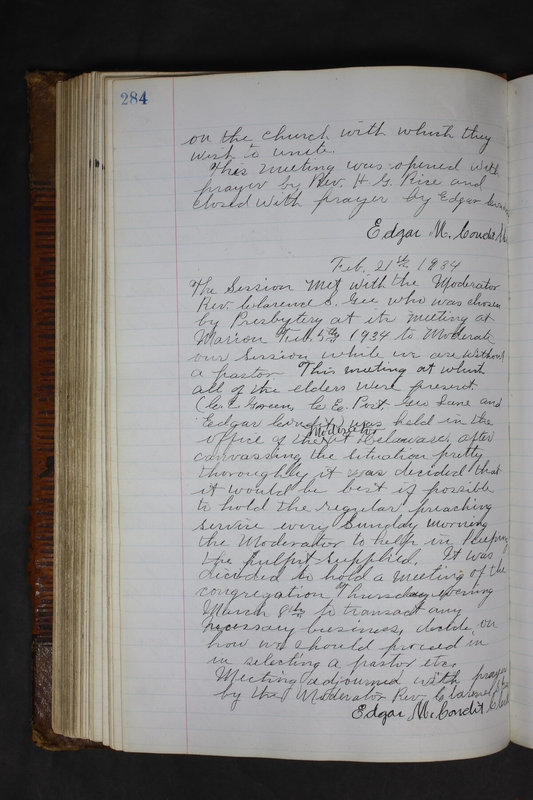 284
on the church with which they
wish to unite.
This meeting was opened with
prayer by Rev. H. G. Rise and
closed with prayer by Edgar
Edgar M. Condit
Feb. 21st 1934
The Session met with the Moderator
Rev. Clarence S. Gee who was chosen
by Presbytery at its meeting at
Marion Feb. 5th 1934 to Moderate
our Session while we are without
a pastor This meeting at which
all of the elders were present
(C. E. Post, Geo Lane and
Edgar Condit) was held in the
Moderator
office of the at Delaware, after
canvassing the situation pretty
thoroughly it was decided that
it would be best if possible
to hold the regular preaching
service every Sunday morning
the Moderator to help in keeping
the pulpit supplied. It was
decided to hold a meeting of the
congregation Thursday evening
March 8th to transact any
necessary business, decide on
how we should proceed in
in selecting a pastor etc.
Meeting adjourned with prayer
by the Moderator Rev. Clarence S. Gee
Edgar M. Condit Clerk